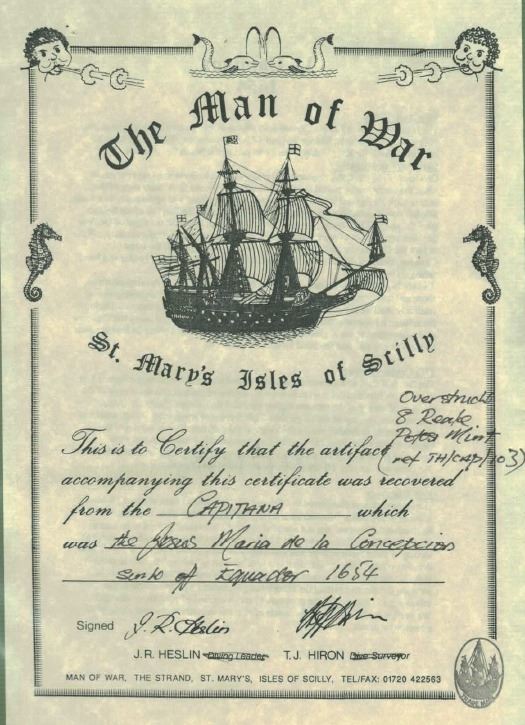 The Man of War
St. Mary's Isles of Scilly
Overstruck
8 Reale
Potosi Mint
(ref TH/CAP/103)
This is to Certify that the artifact
accompanying this certificate was recovered
from the CAPITANA which
was the Jesus Maria de la Concepcion
sunk off Equador 1654
Signed J.R. Heslin
J.R. HESLIN Diving Leader T.J. HIRON Dive Surveyor
MAN OF WAR, THE STRAND, ST. MARY'S, ISLES OF SCILLY, TEL/FAX: 01720 422563